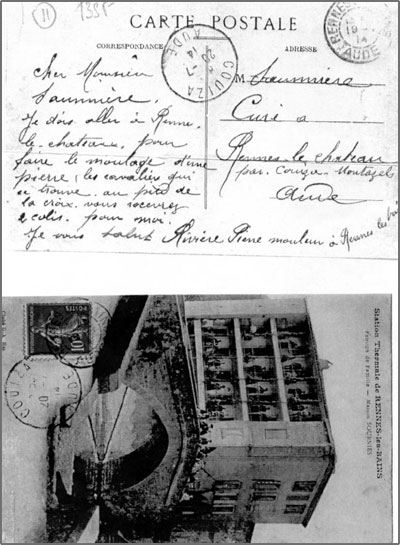 11
1385
CARTE POSTALE
CORRESPONDANCE
ADRESSE
COUIZA
AUDE
20-7
14
RENNES
AUDE
Cher Monsieur
Saunnière.
Je dois aller à Rennes
le chateau, pour
faire le moulage d'une
pierre (les cavaliers qui
se trouve au pied de
la croix. vous recevrez
colis pour moi.
Je vous salut Rivière Pierre mouleur à Rennes les bains
M Saunniere
Curé a
Rennes-le-chateau
par Couiza-Montazels
Aude
Station Thermale de RENNES-les-BAINS
Maison SOURNIES
10
COUIZA